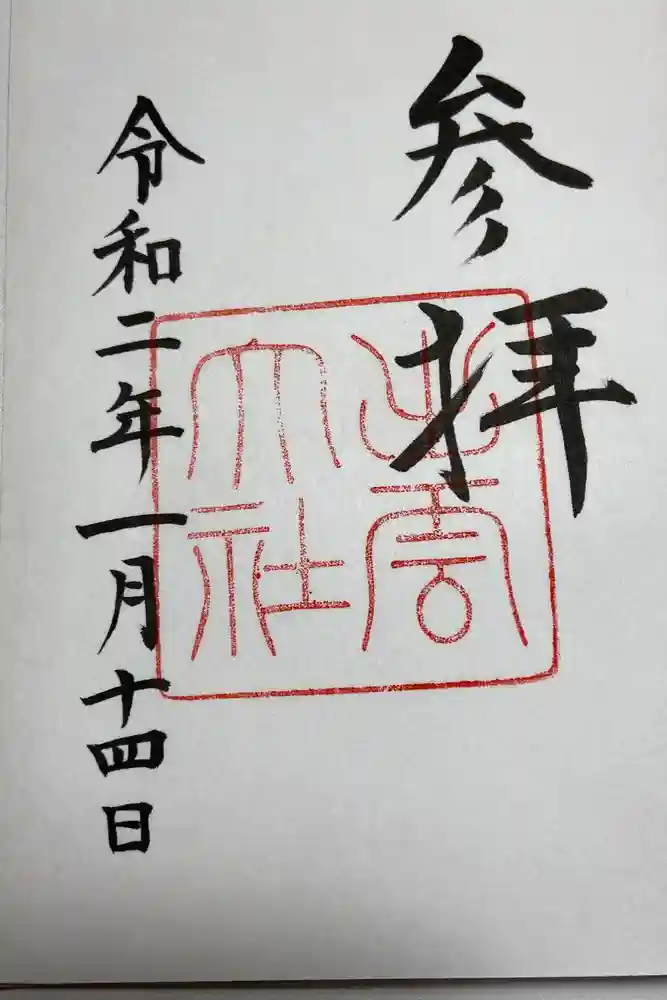 参拝
出雲
大社
令和二年一月十四日